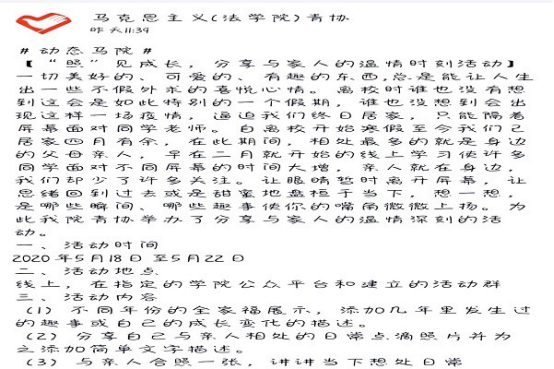 马克思主义(法学院)青协
昨天11:39
# 动态马院 #
【“照”见成长，分享与家人的温情时刻活动】
一切美好的、可爱的、有趣的东西,总是能让人生
出一些不假外求的喜悦心情。离校时谁也没有想
到这会是如此特别的一个假期，谁也没想到会出
现这样一场疫情，逼迫我们终日居家，只能隔着
屏幕面对同学老师。自离校开始寒假至今我们已
居家四月有余，在此期间，相处最多的就是身边
的父母亲人，早在二月就开始的线上学习使许多
同学面对不同屏幕的时间大增，亲人就在身边，
我们却少了许多关注。让眼睛暂时离开屏幕，让
思绪回到过去或是甜蜜地盘桓于当下，想一想，
是哪些瞬间、哪些趣事使你的嘴角微微上扬。为
此我院青协举办了分享与家人的温情深刻的活
动。
一、活动时间
2020年5月18日至5月22日
二、活动地点
线上，在指定的学院公众平台和建立的活动群
三、活动内容
(1) 不同年份的全家福展示，添加几年里发生过
的趣事或自己的成长变化的描述。
(2) 分享自己与亲人相处的日常点滴照片并为
之添加简单文字描述。
(3) 与亲人合照一张，讲讲当下想处日常